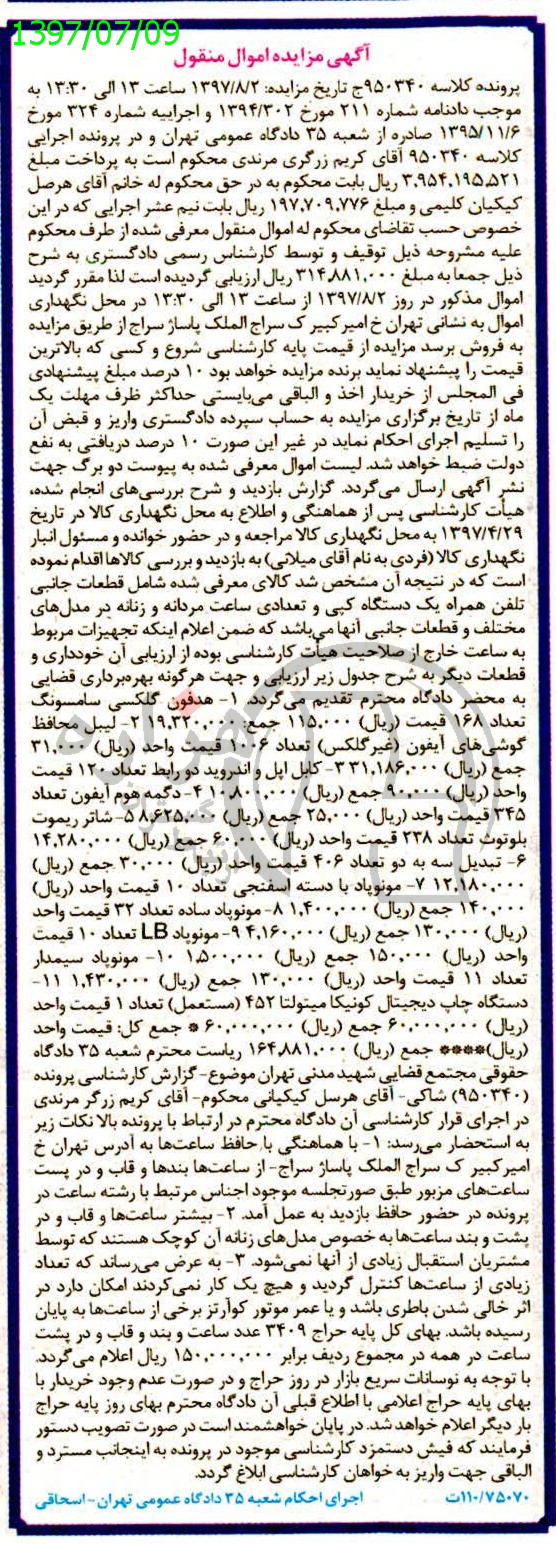 1397/07/09
آگهی مزایده اموال منقول
پرونده کلاسه ۹۵۰۳۴۰ج تاریخ مزایده: ۱۳۹۷/۸/۲ ساعت ۱۳ الی ۱۳:۳۰ به
موجب دادنامه شماره ۲۱۱ مورخ ۱۳۹۴/۳۰۲ و اجراییه شماره ۳۲۴ مورخ
۱۳۹۵/۱۱/۶ صادره از شعبه ۳۵ دادگاه عمومی تهران و در پرونده اجرایی
کلاسه ۹۵۰۳۴۰ آقای کریم زرگری مرندی محکوم است به پرداخت مبلغ
۳,۹۵۴,۱۹۵,۵۲۱ ریال بابت محکوم به در حق محکوم له خانم آقای هرصل
کیکیان کلیمی و مبلغ ۱۹۷,۷۰۹,۷۷۶ ریال بابت نیم عشر اجرایی که در این
خصوص حسب تقاضای محکوم له اموال منقول معرفی شده از طرف محکوم
علیه مشروحه ذیل توقیف و توسط کارشناس رسمی دادگستری به شرح
ذیل جمعا به مبلغ ۳۱۴,۸۸۱,۰۰۰ ریال ارزیابی گردیده است لذا مقرر گردید
اموال مذکور در روز ۱۳۹۷/۸/۲ از ساعت ۱۳ الی ۱۳:۳۰ در محل نگهداری
اموال به نشانی تهران خ امیرکبیر ک سراج الملک پاساژ سراج از طریق مزایده
به فروش برسد مزایده از قیمت پایه کارشناسی شروع و کسی که بالاترین
قیمت را پیشنهاد نماید برنده مزایده خواهد بود ۱۰ درصد مبلغ پیشنهادی
فی المجلس از خریدار اخذ و الباقی می‌بایستی حداکثر ظرف مهلت یک
ماه از تاریخ برگزاری مزایده به حساب سپرده دادگستری واریز و قبض آن
را تسلیم اجرای احکام نماید در غیر این صورت ۱۰ درصد دریافتی به نفع
دولت ضبط خواهد شد. لیست اموال معرفی شده به پیوست دو برگ جهت
نشر آگهی ارسال می‌گردد. گزارش بازدید و شرح بررسی‌های انجام شده،
هیأت کارشناسی پس از هماهنگی و اطلاع به محل نگهداری کالا در تاریخ
۱۳۹۷/۴/۲۹ به محل نگهداری کالا مراجعه و در حضور خوانده و مسئول انبار
نگهداری کالا (فردی به نام آقای میلانی) به بازدید و بررسی کالاها اقدام نموده
است که در نتیجه آن مشخص شد کالای معرفی شده شامل قطعات جانبی
تلفن همراه یک دستگاه کپی و تعدادی ساعت مردانه و زنانه در مدل‌های
مختلف و قطعات جانبی آنها می‌باشد که ضمن اعلام اینکه تجهیزات مربوط
به ساعت خارج از صلاحیت هیأت کارشناسی بوده از ارزیابی آن خودداری و
قطعات دیگر به شرح جدول زیر ارزیابی و جهت هرگونه بهره‌برداری قضایی
به محضر دادگاه محترم تقدیم می‌گردد. ۱- هدفون گلکسی سامسونگ
تعداد ۱۶۸ قیمت (ریال) ۱۱۵,۰۰۰ جمع: ۱۹,۳۲۰,۰۰۰ ۲- لیبل محافظ
گوشی‌های آیفون (غیرگلکس) تعداد ۱۰۰۶ قیمت واحد (ریال) ۳۱,۰۰۰
جمع (ریال) ۳۱,۱۸۶,۰۰۰ ۳- کابل اپل و اندروید دو رابط تعداد ۱۲۰ قیمت
واحد (ریال) ۹۰,۰۰۰ جمع (ریال) ۱۰,۸۰۰,۰۰۰ ۴- دگمه هوم آیفون تعداد
۳۴۵ قیمت واحد (ریال) ۲۵,۰۰۰ جمع (ریال) ۸,۶۲۵,۰۰۰ ۵- شاتر ریموت
بلوتوث تعداد ۲۳۸ قیمت واحد (ریال) ۶۰,۰۰۰ جمع (ریال) ۱۴,۲۸۰,۰۰۰
۶- تبدیل سه به دو تعداد ۴۰۶ قیمت واحد (ریال) ۳۰,۰۰۰ جمع (ریال)
۱۲,۱۸۰,۰۰۰ ۷- مونوپاد با دسته اسفنجی تعداد ۱۰ قیمت واحد (ریال)
۱۴۰,۰۰۰ جمع (ریال) ۱,۴۰۰,۰۰۰ ۸- مونوپاد ساده تعداد ۳۲ قیمت واحد
(ریال) ۱۳۰,۰۰۰ جمع (ریال) ۴,۱۶۰,۰۰۰ ۹- مونوپاد LB تعداد ۱۰ قیمت
واحد (ریال) ۱۵۰,۰۰۰ جمع (ریال) ۱,۵۰۰,۰۰۰ ۱۰- مونوپاد سیمدار
تعداد ۱۱ قیمت واحد (ریال) ۱۳۰,۰۰۰ جمع (ریال) ۱,۴۳۰,۰۰۰ ۱۱-
دستگاه چاپ دیجیتال کونیکا مینولتا ۴۵۲ (مستعمل) تعداد ۱ قیمت واحد
(ریال) ۶۰,۰۰۰,۰۰۰ جمع (ریال) ۶۰,۰۰۰,۰۰۰ * جمع کل: قیمت واحد
(ریال)**** جمع (ریال) ۱۶۴,۸۸۱,۰۰۰ ریاست محترم شعبه ۳۵ دادگاه
حقوقی مجتمع قضایی شهید مدنی تهران موضوع- گزارش کارشناسی پرونده
(۹۵۰۳۴۰) شاکی- آقای هرسل کیکیانی محکوم- آقای کریم زرگر مرندی
در اجرای قرار کارشناسی آن دادگاه محترم در ارتباط با پرونده بالا نکات زیر
به استحضار می‌رسد: ۱- با هماهنگی با حافظ ساعت‌ها به آدرس تهران خ
امیرکبیر ک سراج الملک پاساژ سراج- از ساعت‌ها بندها و قاب و در پست
ساعت‌های مزبور طبق صورتجلسه موجود اجناس مرتبط با رشته ساعت در
پرونده در حضور حافظ بازدید به عمل آمد. ۲- بیشتر ساعت‌ها و قاب و در
پشت و بند ساعت‌ها به خصوص مدل‌های زنانه آن کوچک هستند که توسط
مشتریان استقبال زیادی از آنها نمی‌شود. ۳- به عرض می‌رساند که تعداد
زیادی از ساعت‌ها کنترل گردید و هیچ یک کار نمی‌کردند امکان دارد در
اثر خالی شدن باطری باشد و یا عمر موتور کوآرتز برخی از ساعت‌ها به پایان
رسیده باشد. بهای کل پایه حراج ۳۴۰۹ عدد ساعت و بند و قاب و در پشت
ساعت در همه در مجموع ردیف برابر ۱۵۰,۰۰۰,۰۰۰ ریال اعلام می‌گردد.
با توجه به نوسانات سریع بازار در روز حراج و در صورت عدم وجود خریدار با
بهای پایه حراج اعلامی با اطلاع قبلی آن دادگاه محترم بهای روز پایه حراج
بار دیگر اعلام خواهد شد. در پایان خواهشمند است در صورت تصویب دستور
فرمایند که فیش دستمزد کارشناسی موجود در پرونده به اینجانب مسترد و
الباقی جهت واریز به خواهان کارشناسی ابلاغ گردد.
۱۱۰/۷۵۰۷۰ت اجرای احکام شعبه ۳۵ دادگاه عمومی تهران - اسحاقی